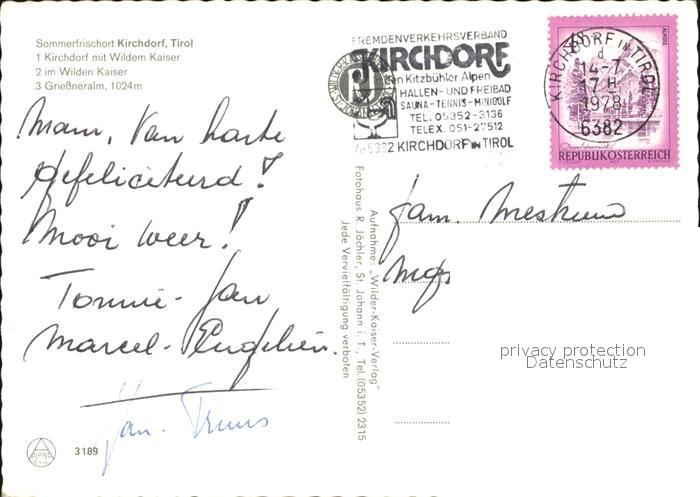 Sommerfrischort Kirchdorf, Tirol
1 Kirchdorf mit Wildem Kaiser
2 im Wilden Kaiser
3 Grießneralm, 1024 m
Mam, Van harte
gefeliciteerd!
Mooi weer!
Tonnie - Jan
Marcel - Engelien.
Jan.
3189
FREMDENVERKEHRSVERBAND
KIRCHDORF
den Kitzbühler Alpen
HALLEN- UND FREIBAD
SAUNA-TENNIS-MINIGOLF
TEL. 05352-3136
TELEX. 051-27512
A-6382 KIRCHDORF IN TIROL
KIRCHDORF IN TIROL
d
14.-7.
17 H
1978
6382
ALMSEE
REPUBLIK ÖSTERREICH
Aufnahme: „Wilder-Kaiser-Verlag"
Fotohaus R. Jöchler, St. Johann i. T., Tel. (05352) 2315
Jede Vervielfältigung verboten
fam.
privacy protection
Datenschutz